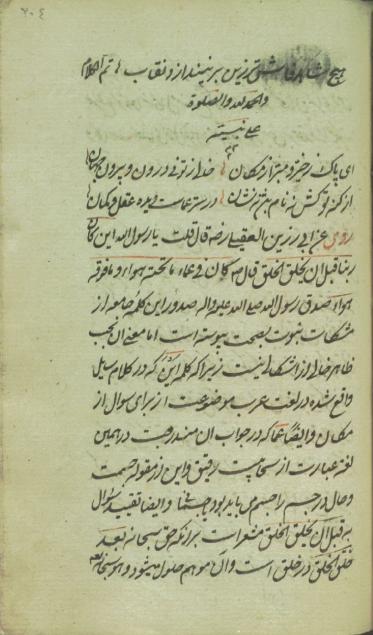 ٢٠٤
هیچ شاهد فاش تر زین برنیندازد نقاب تم الکلام
والحمد لله والصلوة
علی نبیّه
ای پاک ز حیز و مبرا ز مکان خالی ز تو نی درون و بیرون جهان
از کنه تو کس نه نام هرگز نه نشان در ستر عماست دیده عقل و گمان
روی عن ابی رزین العقیلی رض قال قلت یا رسول الله این کان
ربنا قبل ان یخلق الخلق قال کان فی عماء ما تحته هواء و ما فوقه
هواء صدق رسول الله صلی الله علیه واله صدور این کلمه جامعه از
مشکات نبوت بصحت پیوسته است اما معنی ان بحسب
ظاهر خالی از اشکالی نیست زیرا که کلمه این که در کلام سایل
واقع شده در لغت عرب موضوعست از برای سوال از
مکان و ایضا عما که در جواب ان مندرجست در همین
لغة عبارت از سحابیست رقیق و این از مقوله جسمست
و حال در جسم را جسم می باید بود و ایضا تقیید سوال
به قبل ان یخلق الخلق مشعر است بر انکه حق سبحانه بعد
خلق الخلق در خلق است و آن موهم حلول میشود و هو سبحانه